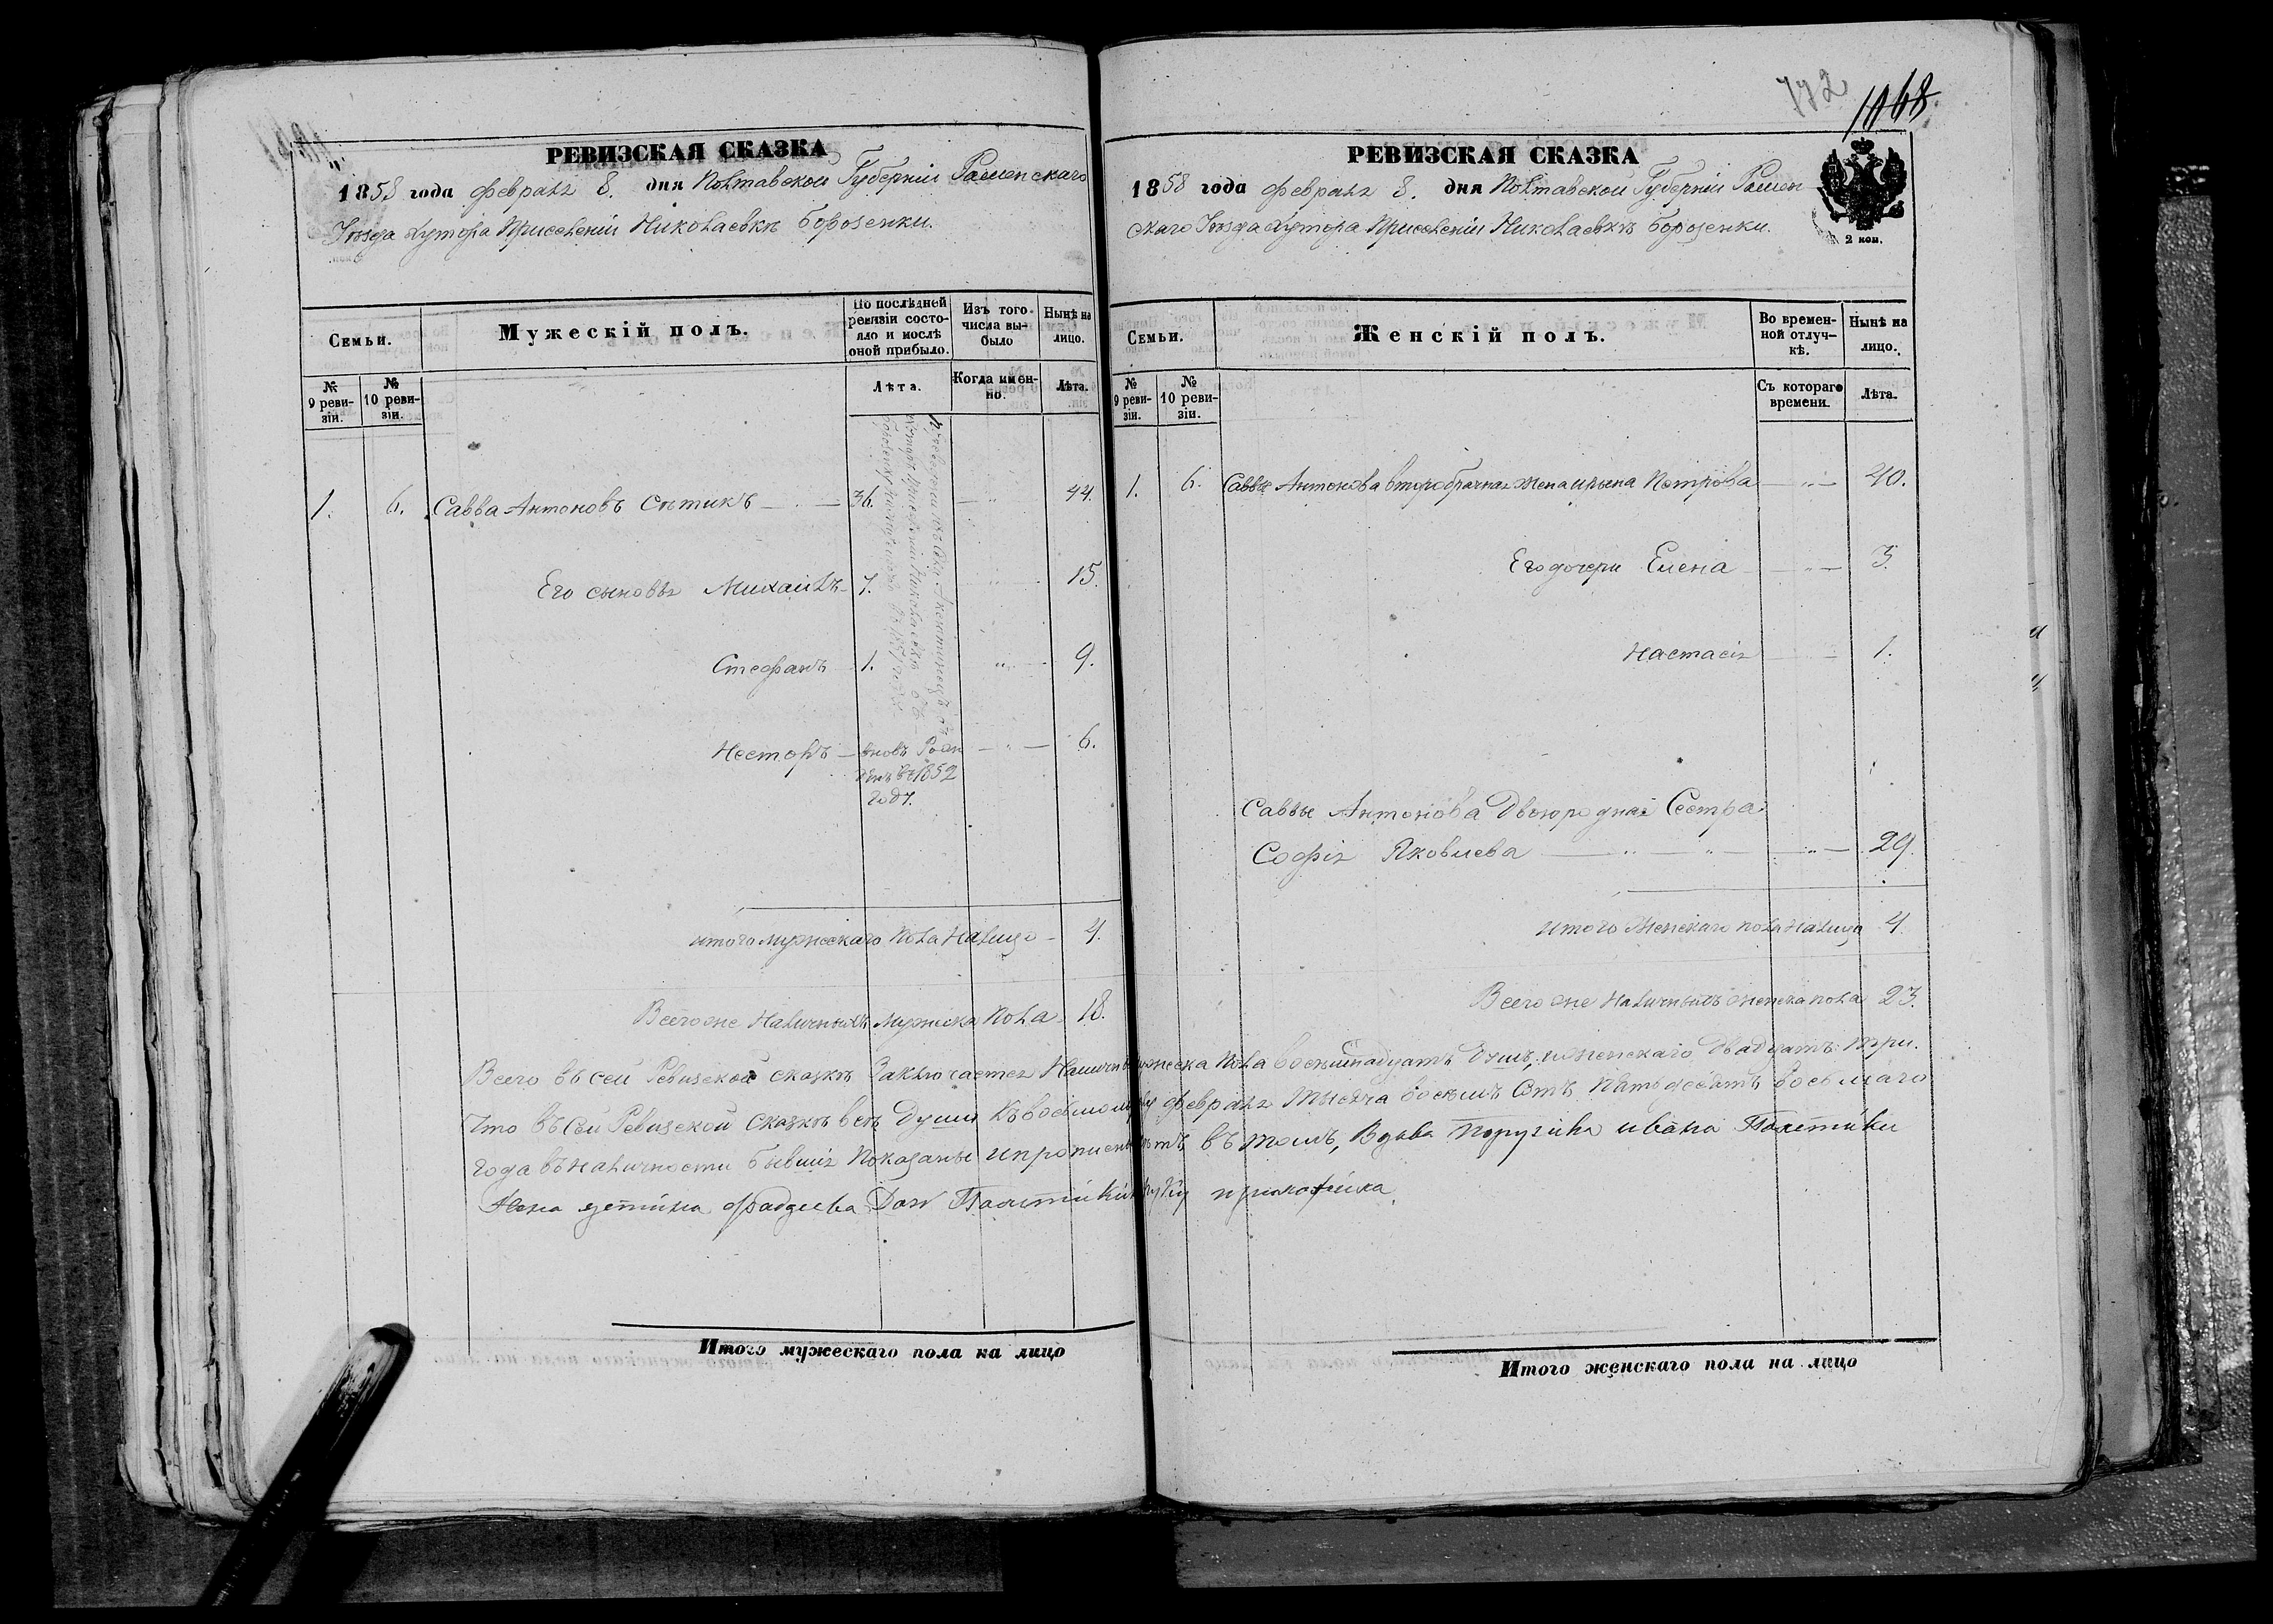 772
1068
РЕВИЗСКАЯ СКАЗКА
1858 года февраля 8. дня Полтавской Губерніи Роменскаго
Уѣзда Хутора Приселеніи Николаевкѣ Борозенки.
Семьи.
Мужескій полъ.
По послѣдней ревизіи состояло и послѣ оной прибыло.
Изъ того числа выбыло
Нынѣ на лицо.
№ 9 ревизіи.
№ 10 ревизіи.
Лѣта.
Когда именно.
Лѣта.
1. 6. Савва Антоновъ Сѣтикъ 36. 44.
Его сыновья Михаилъ 7. 15.
Стефанъ 1. 9.
Несторъ вновь Рожденъ въ 1852 году. 6.
итого мужескаго пола налицо 4.
Всего же Наличныхъ мужеска пола 18.
РЕВИЗСКАЯ СКАЗКА
1858 года февраля 8. дня Полтавской Губерніи Ромен
скаго Уѣзда Хутора Приселеніи Николаевкѣ Борозенки.
2 коп.
Семьи.
Женскій полъ.
Во временной отлучкѣ.
Нынѣ на лицо.
№ 9 ревизіи.
№ 10 ревизіи.
Съ котораго времени.
Лѣта.
1. 6. Саввы Антонова второбрачная жена Ирына Петрова 40.
Его дочери Елена 3.
Настасія 1.
Саввы Антонова Двоюродная Сестра
Софія Яковлева 29.
итого Женскаго пола налицо 4.
Всего же Наличныхъ женска пола 23.
Всего въ сей Ревизской сказкѣ Заключается Наличныхъ мужеска пола восемнадцать Душъ, и женскаго Двадцать три.
Что въ сей Ревизской сказкѣ всѣ Души Къ восьмому февраля тысяча восемь Сотъ Пятьдесятъ восьмаго
года въ наличности бывшія показаны и въ томъ, Вдова Поручика Ивана Полетики
Фадѣева Дочь Полетики руку приложила
Итого мужескаго пола на лицо
Итого женскаго пола на лицо